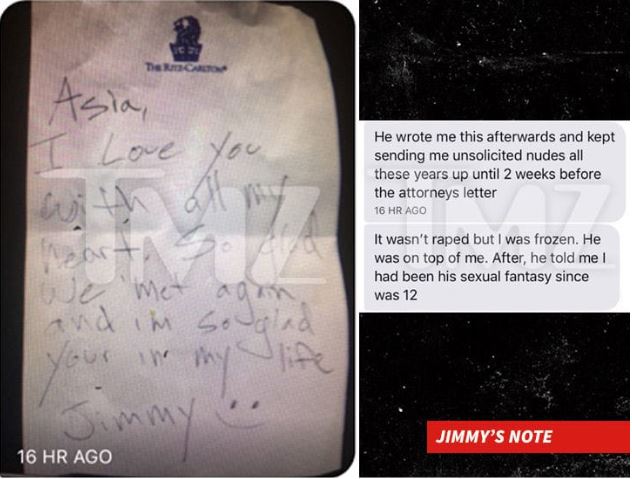 THE RITZ-CARLTON®
Asia,
I Love you
with all my
heart. So glad
we met again
and im so glad
your in my life
Jimmy :)
16 HR AGO
TMZ
He wrote me this afterwards and kept
sending me unsolicited nudes all
these years up until 2 weeks before
the attorneys letter
16 HR AGO
It wasn't raped but I was frozen. He
was on top of me. After, he told me I
had been his sexual fantasy since
was 12
TMZ
JIMMY'S NOTE